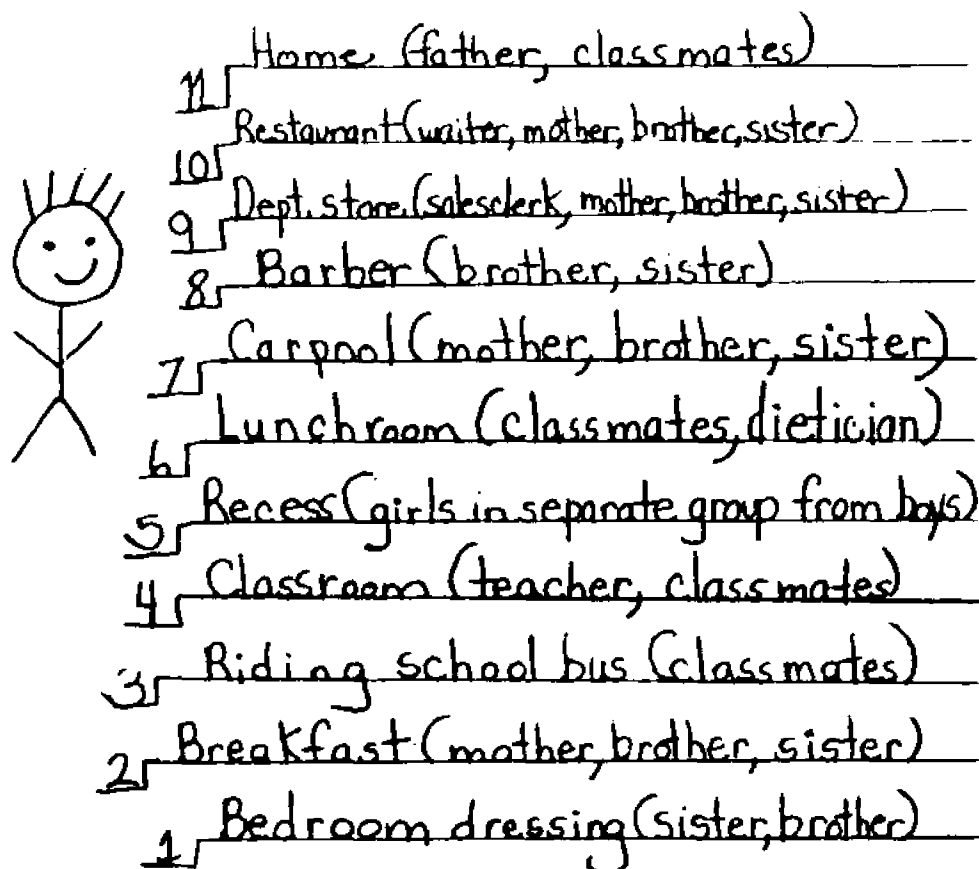 11 Home (father, classmates)
10 Restaurant (waiter, mother, brother, sister)
9 Dept. store (salesclerk, mother, brother, sister)
8 Barber (brother, sister)
7 Carpool (mother, brother, sister)
6 Lunchroom (classmates, dietician)
5 Recess (girls in separate group from boys)
4 Classroom (teacher, classmates)
3 Riding school bus (classmates)
2 Breakfast (mother, brother, sister)
1 Bedroom dressing (sister, brother)